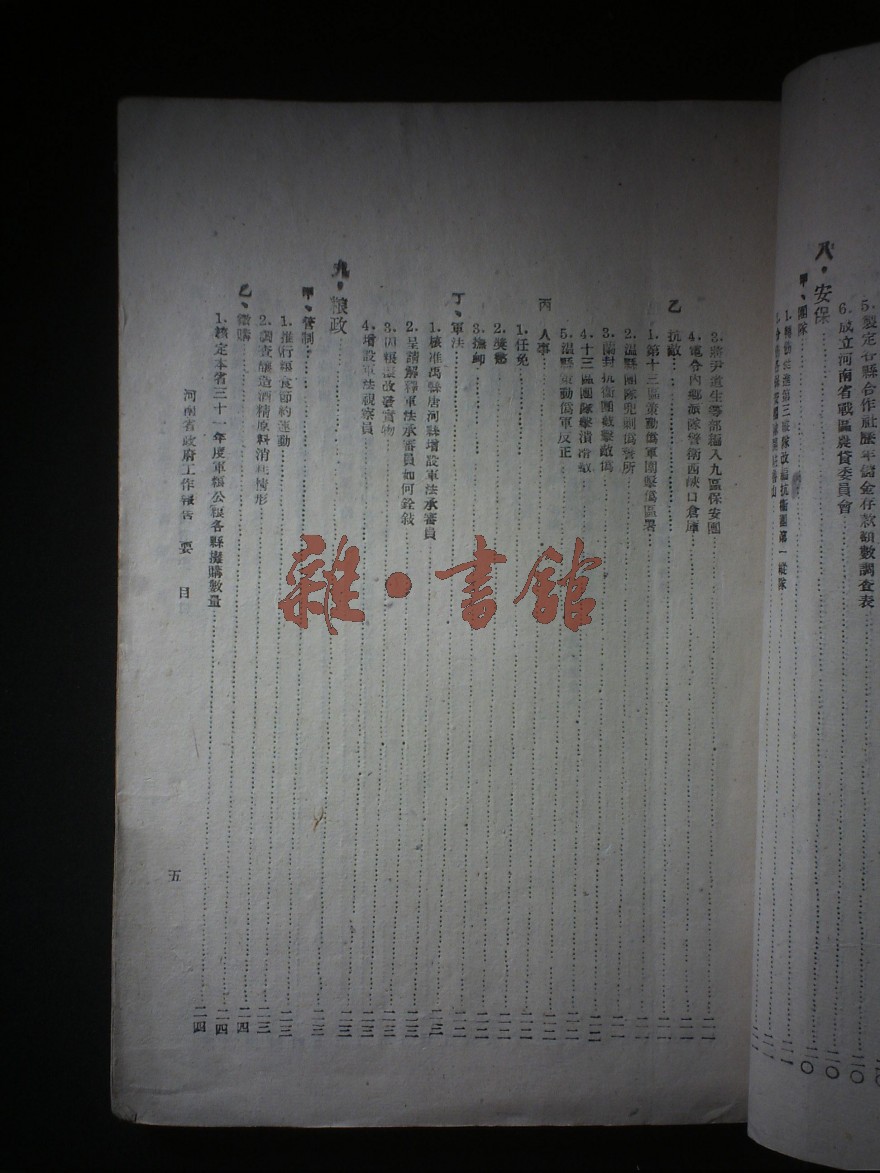 5.製定各縣合作社歷年儲金存款額數調查表
6.成立河南省戰區農貸委員會……二〇
八・安保……二〇
甲、團隊……二〇
3.將尹道生等部編入九區保安團……二一
4.電令內鄉派隊警衛西峽口倉庫……二一
乙 抗敵……二一
1.第十三區策動偽軍圍擊偽區署……二一
2.溫縣團隊兜剿偽警所……二一
3.蘭封抗衛團截擊敵偽
4.十三區團隊擊潰滑敵
5.溫縣策動偽軍反正……二二
丙 人事……二二
1.任免……二二
2.獎懲……二二
3.撫卹……二二
丁、軍法……二二
1.核准禹縣唐河縣增設軍法承審員……二三
2.呈請解釋軍法承審員如何銓敍……二三
3.囚糧擬改發實物……二三
4.增設軍法視察員……二三
九・粮政……二三
甲、管制……二三
1.推行糧食節約運動……二三
2.調查釀造酒精原料消耗情形……二三
乙、徵購……二四
1.核定本省三十一年度軍糧公糧各縣擬購數量……二四
河南省政府工作報告 要目
五
雜・書館